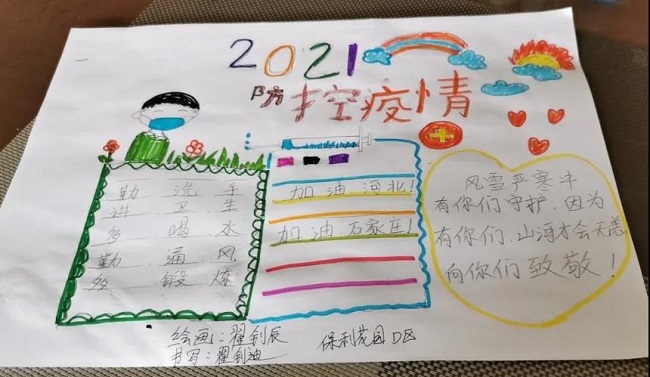 2021
防控疫情
勤洗手
进卫生
多喝水
勤通风
多锻炼
加油,河北!
加油石家庄!
风雪严寒中
有你们守护,因为
有你们,山河才会无恙
向你们致敬!
绘画:翟钊辰
书写:翟钊迪
保利花园D区